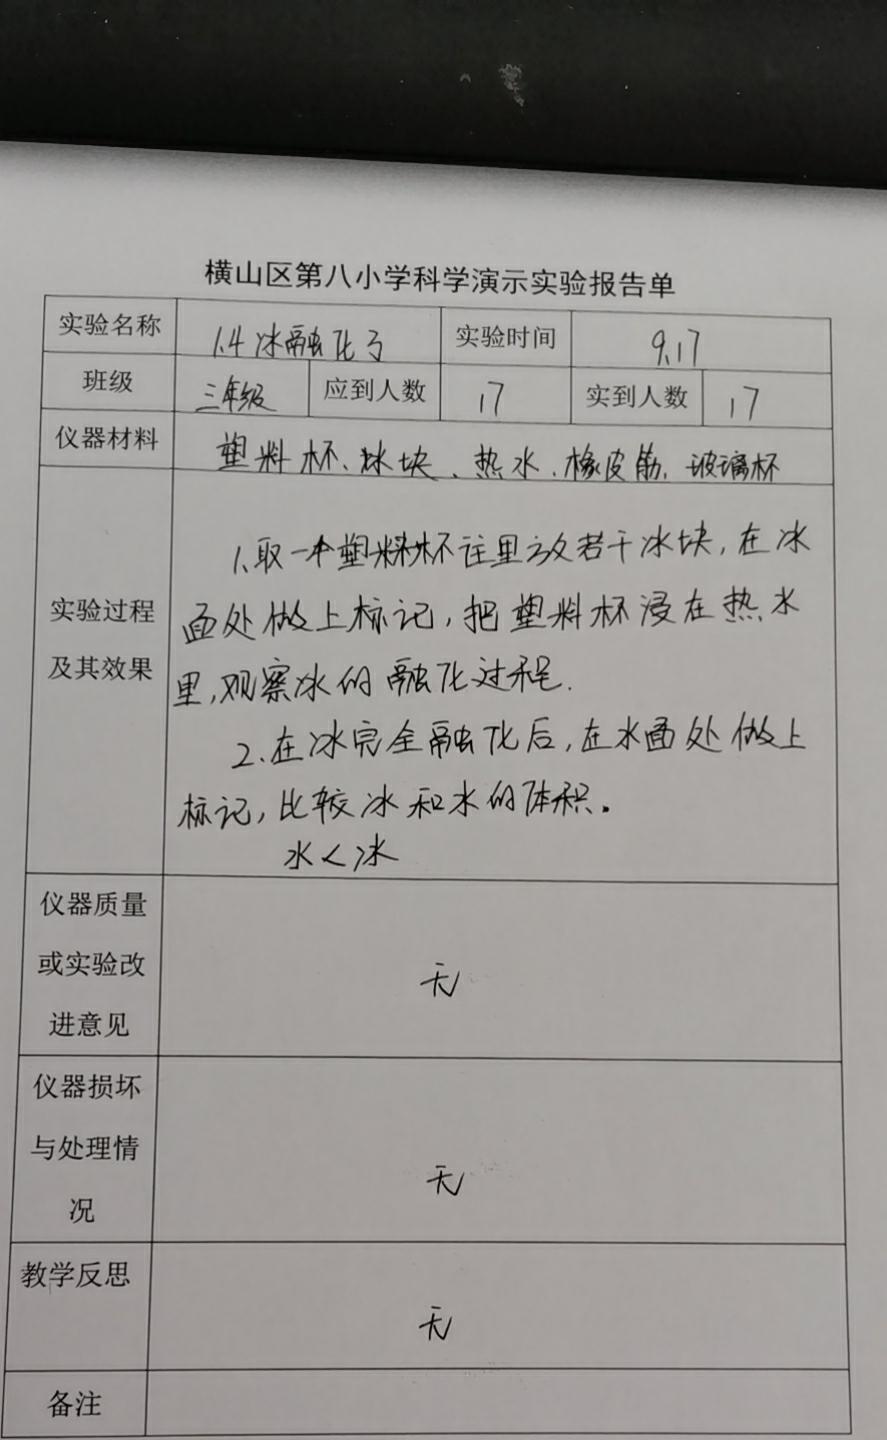 横山区第八小学科学演示实验报告单
实验名称 1.4冰融化了 实验时间 9.17
班级 三年级 应到人数 17 实到人数 17
仪器材料 塑料杯、冰块、热水、橡皮筋、玻璃杯
1.取一个塑料杯往里放若干冰块,在冰
实验过程 面处做上标记,把塑料杯浸在热水
及其效果 里,观察冰的融化过程.
2.在冰完全融化后,在水面处做上
标记,比较冰和水的体积.
水<冰
仪器质量
或实验改 无
进意见
仪器损坏
与处理情 无
况
教学反思 无
备注